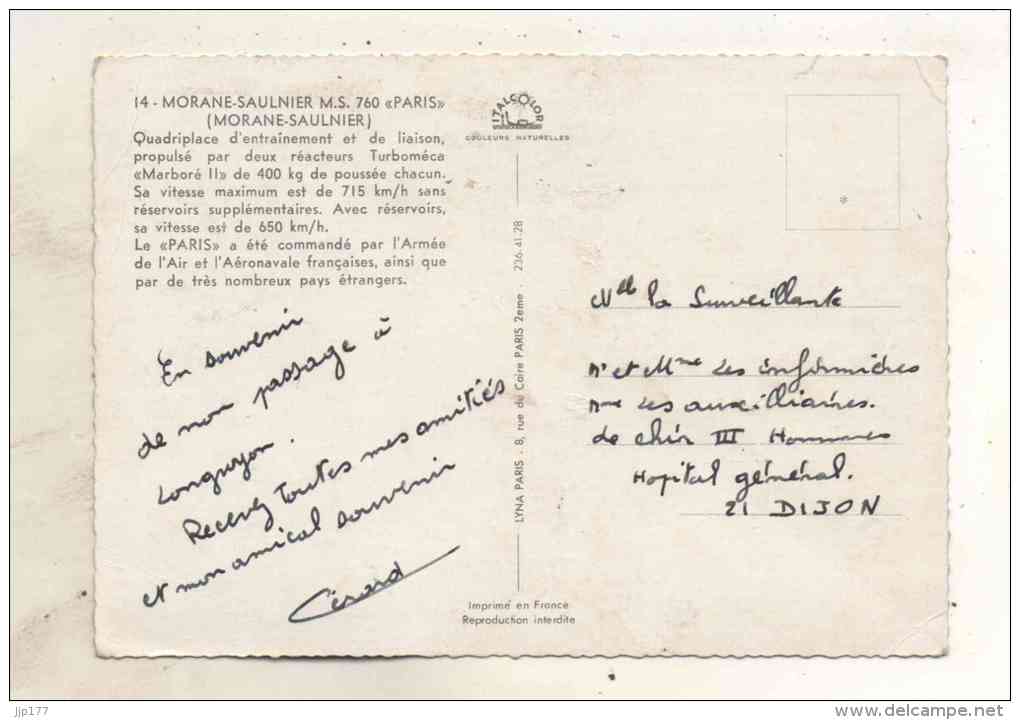 14 - MORANE-SAULNIER M.S. 760 «PARIS»
(MORANE-SAULNIER)
Quadriplace d'entraînement et de liaison,
propulsé par deux réacteurs Turboméca
«Marboré II» de 400 kg de poussée chacun.
Sa vitesse maximum est de 715 km/h sans
réservoirs supplémentaires. Avec réservoirs,
sa vitesse est de 650 km/h.
Le «PARIS» a été commandé par l'Armée
de l'Air et l'Aéronavale françaises, ainsi que
par de très nombreux pays étrangers.
En souvenir
de mon passage à
Longuyon.
Recevez toutes mes amitiés
et mon amical souvenir
Gérard
ITALCOLOR
COULEURS NATURELLES
LYNA PARIS - 8, rue du Caire PARIS 2eme - 236-41-28
Imprimé en France
Reproduction interdite
Mlle la Surveillante
Mr et Mme Les infirmières
Mme Les auxilliaires.
de chir III Hommes
Hopital général.
21 DIJON
jjp177
©delcampe.net